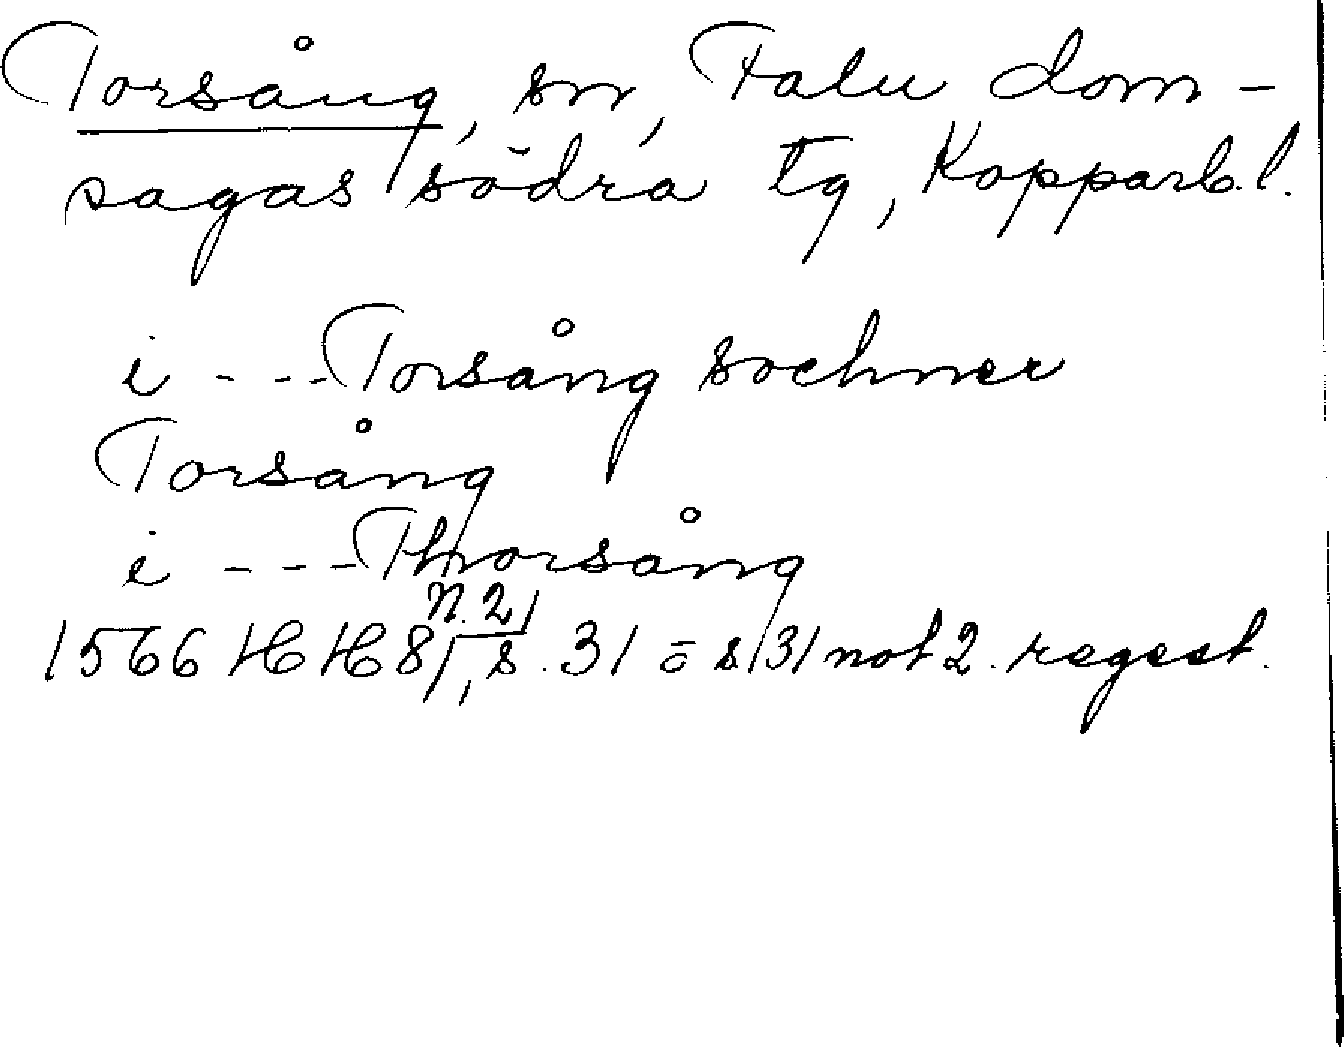 Torsång, sn, Falu dom-
sagas södra tg, Kopparb.l.
i ---Torsång sochner
Torsång
i ---Thorsång
n. 2
1566 HH 8/1, s. 31 o s 31 not 2. regest.